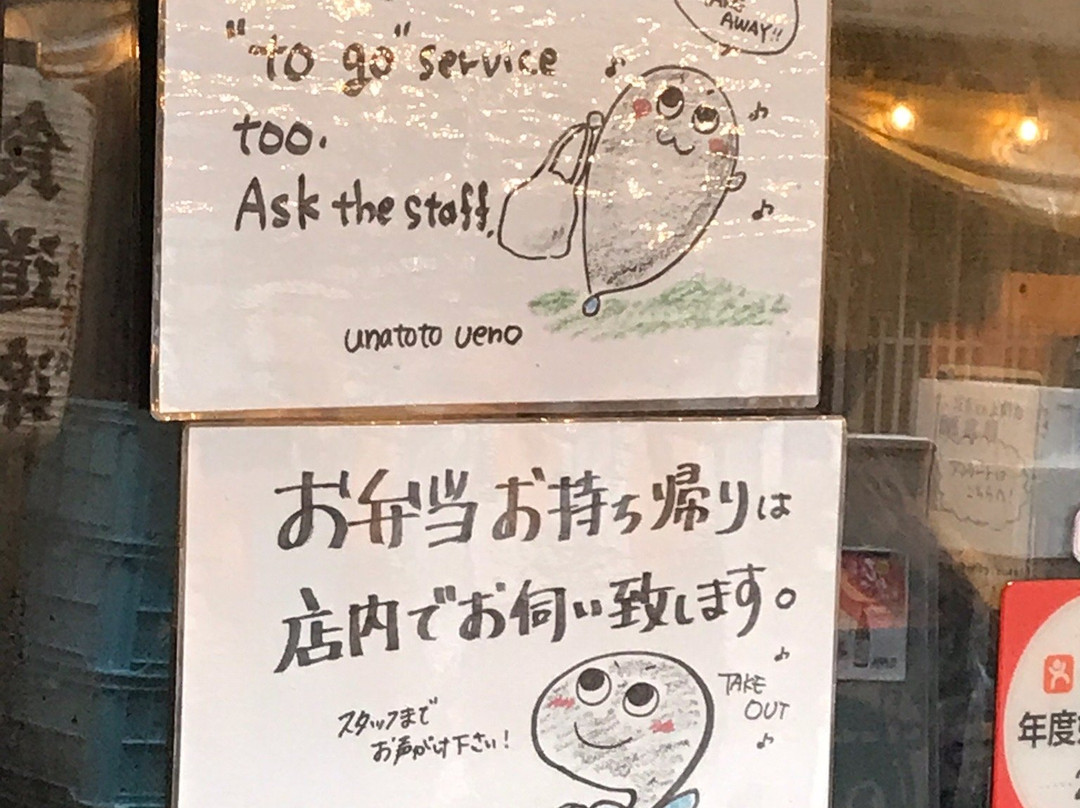 AWAY!!
"to go" service
too.
Ask the staff.
unatoto ueno
お弁当お持ち帰りは
店内でお伺い致します。
スタッフまで
お声がけ下さい!
TAKE
OUT
食道楽
年度